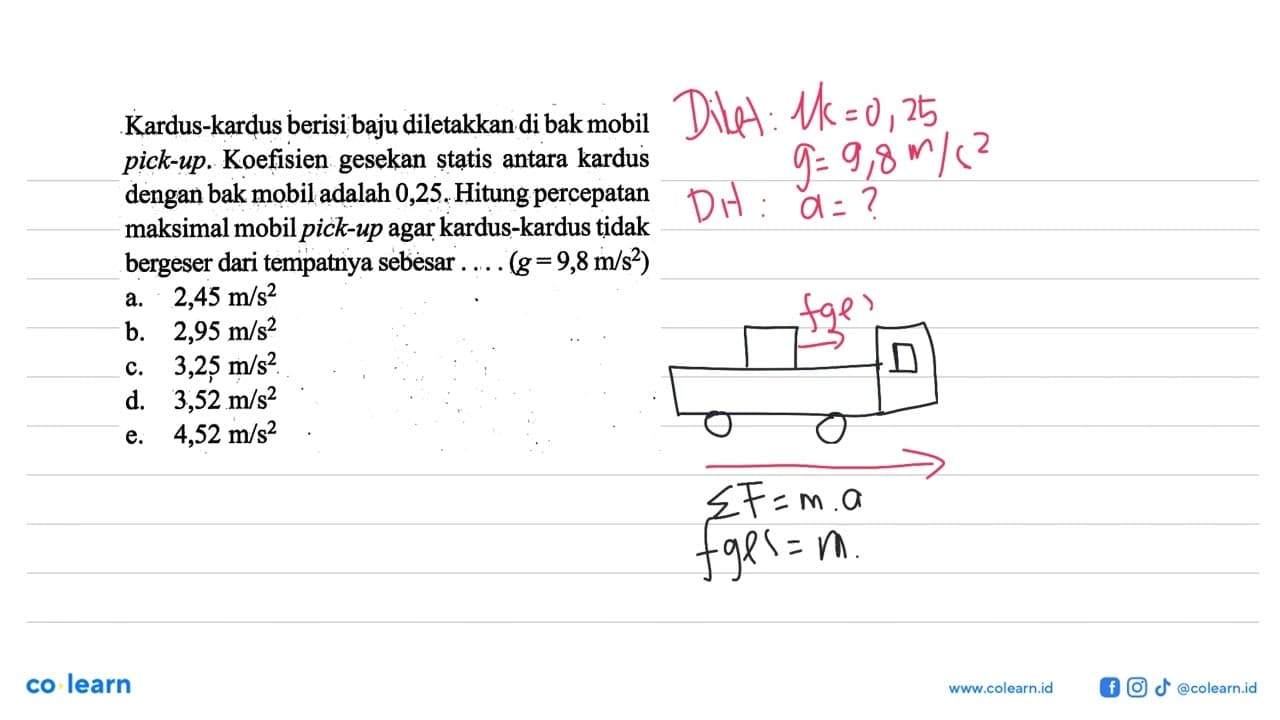 Kardus-kardus berisi baju diletakkan di bak mobil
pick-up. Koefisien gesekan statis antara kardus
dengan bak mobil adalah 0,25. Hitung percepatan
maksimal mobil pick-up agar kardus-kardus tidak
bergeser dari tempatnya sebesar . . . . (g = 9,8 m/s²)
a. 2,45 m/s²
b. 2,95 m/s²
c. 3,25 m/s²
d. 3,52 m/s²
e. 4,52 m/s²
Diket: μk = 0,25
g = 9,8 m/s²
DH : a = ?
fges
ΣF = m . a
fges = m.
co learn
www.colearn.id
@colearn.id